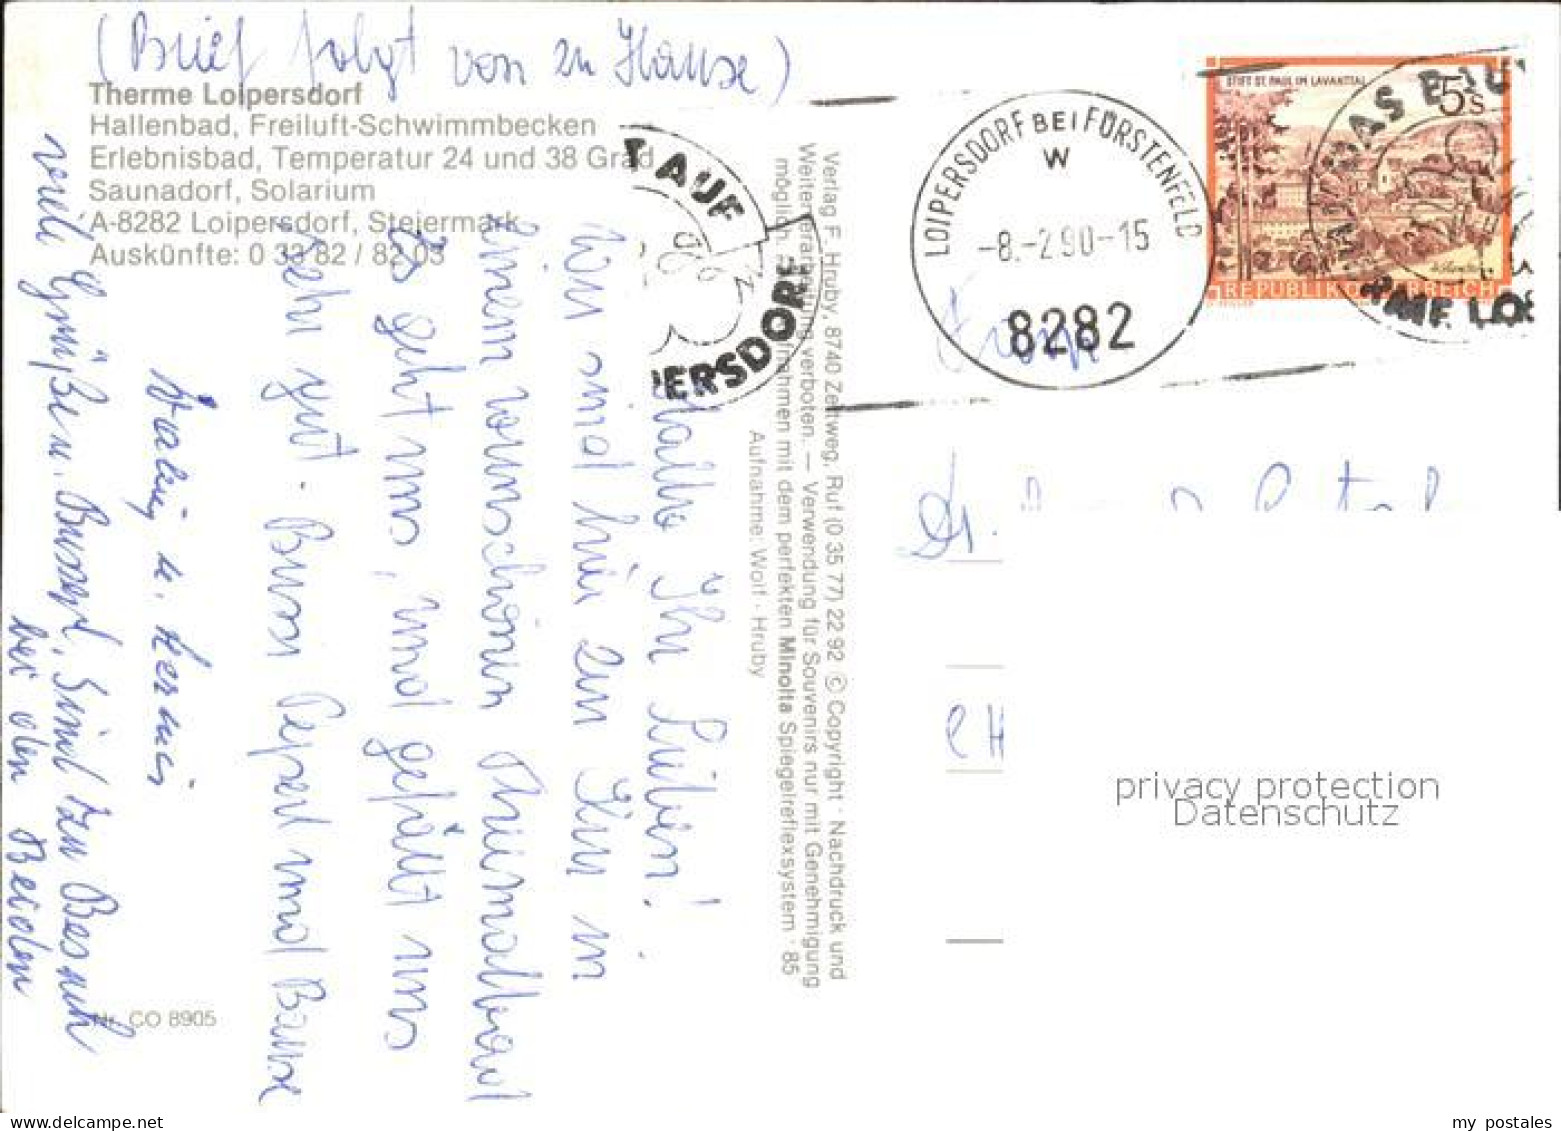 (Brief folgt von zu Hause)
Therme Loipersdorf
Hallenbad, Freiluft-Schwimmbecken
Erlebnisbad, Temperatur 24 und 38 Grad
Saunadorf, Solarium
A-8282 Loipersdorf, Steiermark
Auskünfte: 0 33 82 / 82 03
Hallo Ihr Lieben!
Wir sind hier zur Kur in
einem wunschönen Thermalbad
Es geht uns, und gefällt uns
sehr gut. Bussi Pepserl und Bause
u. Hermi
viele Grüße u. Busserl, Sind zu Besuch
bei den Beiden
Nr. CO 8905
T AUF
PERSDORF
Verlag F. Hruby, 8740 Zeltweg, Ruf (0 35 77) 22 92 © Copyright · Nachdruck und
Weiterverarbeitung verboten. — Verwendung für Souvenirs nur mit Genehmigung
möglich. Aufnahmen mit dem perfekten Minolta Spiegelreflexsystem · 85
Aufnahme: Wolf · Hruby
LOIPERSDORF BEI FÜRSTENFELD
W
-8.-2.90-15
8282
STIFT ST. PAUL IM LAVANTTAL
5 S
REPUBLIK ÖSTERREICH
RME LOI
Dr.
CH
privacy protection
Datenschutz
my postales